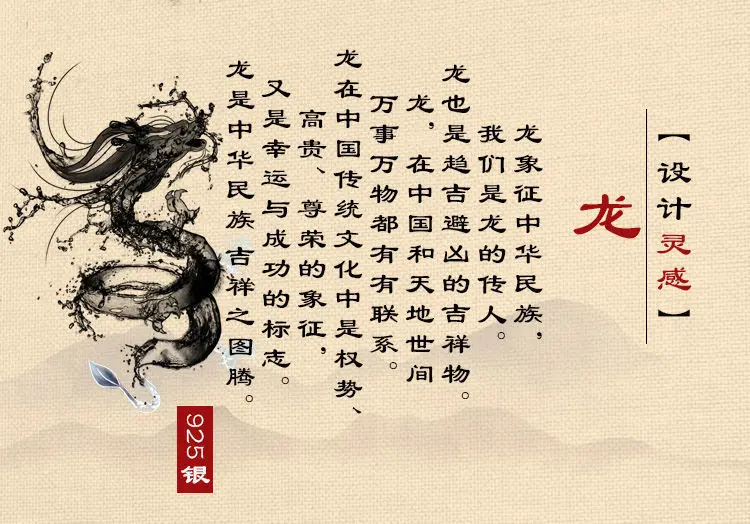 【设计灵感】
龙
龙象征中华民族，
我们是龙的传人。
龙也是趋吉避凶的吉祥物。
龙，在中国和天地世间
万事万物都有有联系。
龙在中国传统文化中是权势、
高贵、尊荣的象征，
又是幸运与成功的标志。
龙是中华民族吉祥之图腾。
925银